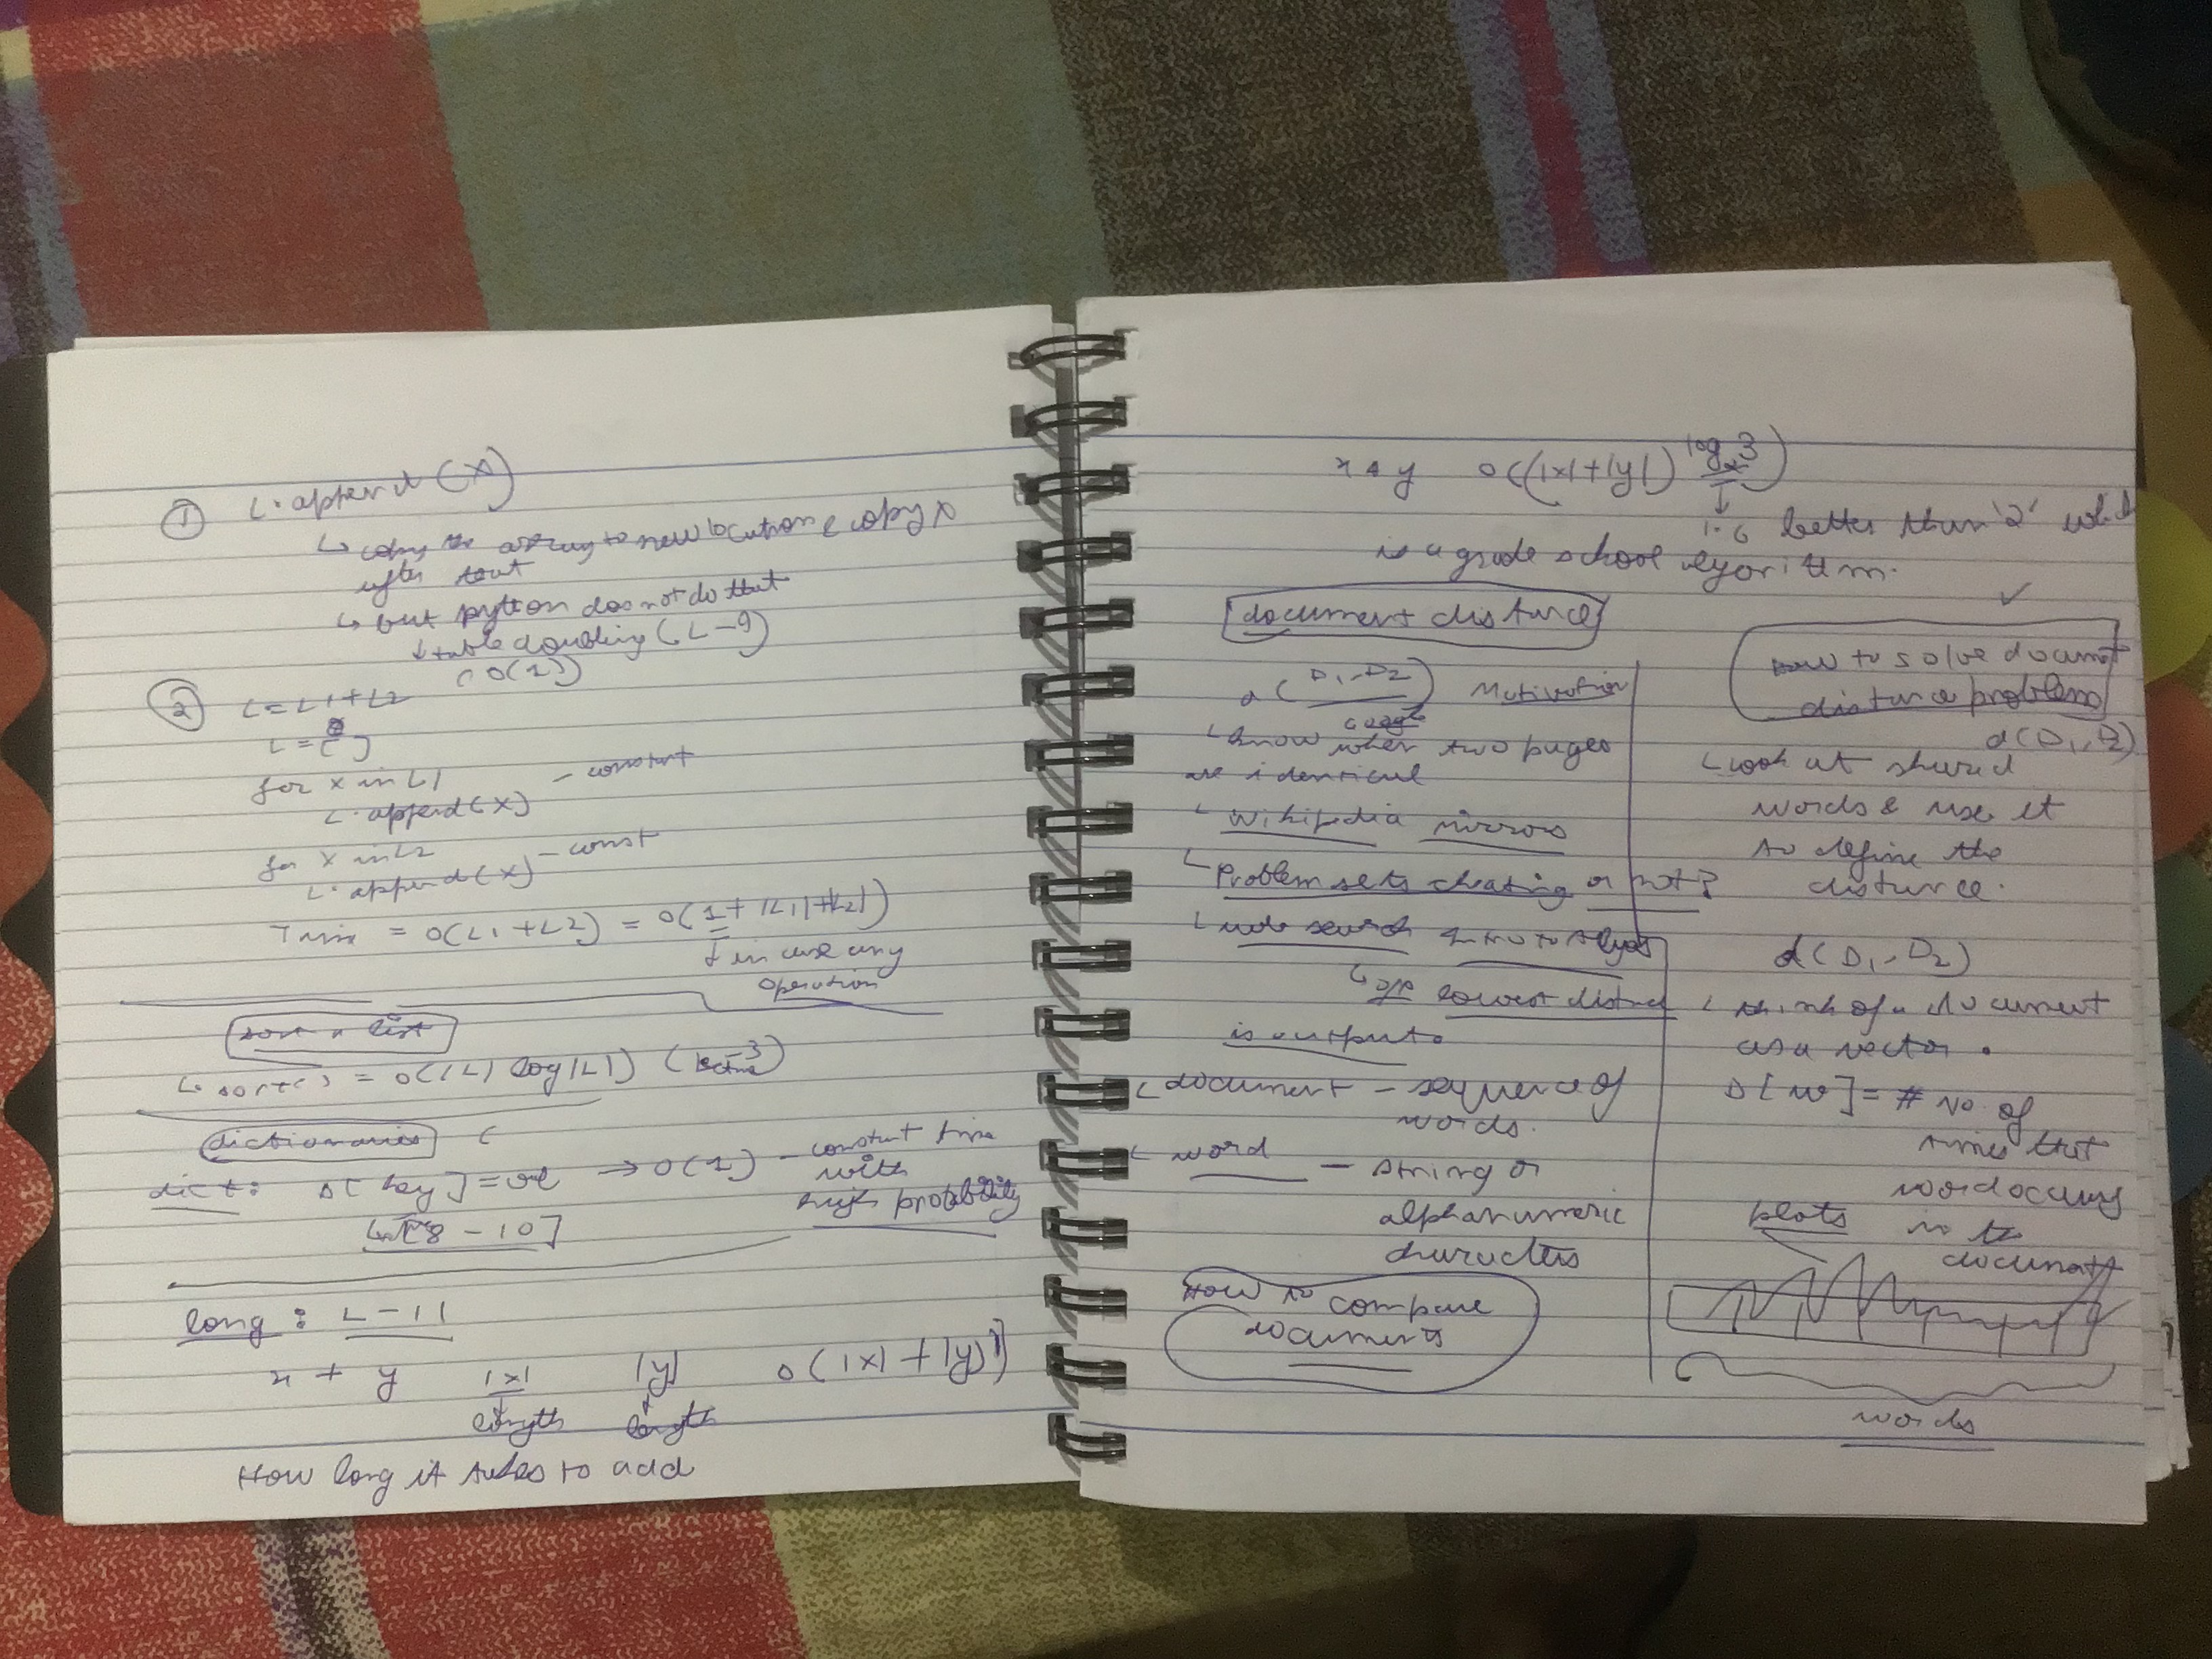 ① L.append(x)
↳ copy the array to new location & copy x
after that
↳ but python does not do that
↓ table doubling (L-9)
(O(1))
② L = L1+L2
L = [ ]
for x in L1
L.append(x) - constant
for x in L2
L.append(x) - const
Time = O(L1+L2) = O(1+|L1|+|L2|)
↓ in case any
operation
sort a list
L.sort() = O(|L| log|L|) (lecture-3)
dictionaries (
dict: D[key] = val → O(1) - constant time
with
high probability
[8 - 10]
long : L-11
x + y |x| |y| O(|x|+|y|)
length length
How long it takes to add
x * y O((|x|+|y|)^log₂3)
↓
1.6 better than '2' which
is a grade school algorithm.
document distance
d(D1, D2) Motivation
Google
↳ know when two pages
are identical
↳ Wikipedia mirrors
↳ Problem sets cheating or not?
↳ web search
↳ o/p lowest distance
is output.
↳ document - sequence of
words.
↳ word - string of
alphanumeric
characters
How to compare
documents
✓
How to solve document
distance problem
d(D1, D2)
↳ look at shared
words & use it
to define the
distance.
d(D1, D2)
↳ think of a document
as a vector.
D[w] = # No. of
times that
word occurs
in the
document
plots
words